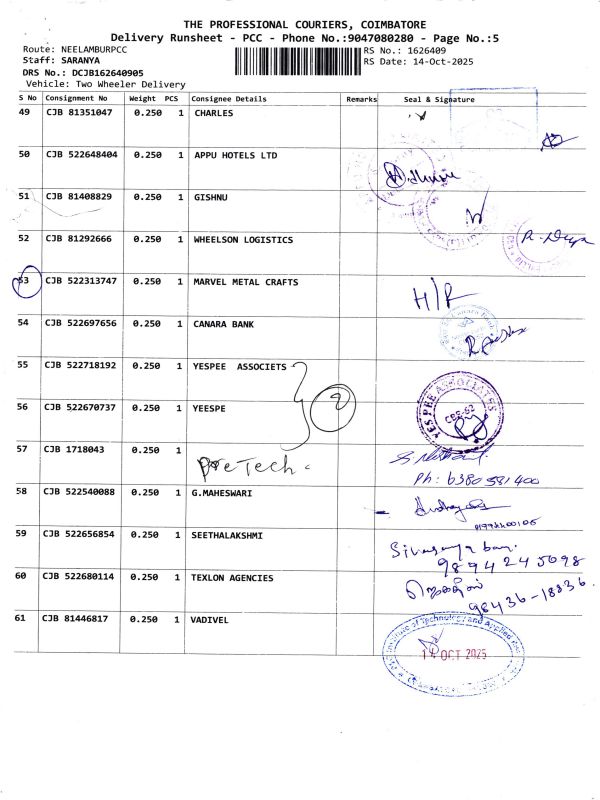 THE PROFESSIONAL COURIERS, COIMBATORE
Delivery Runsheet - PCC - Phone No.:9047080280 - Page No.:5
Route: NEELAMBURPCC
Staff: SARANYA
DRS No.: DCJB162640905
Vehicle: Two Wheeler Delivery
RS No.: 1626409
RS Date: 14-Oct-2025
S No Consignment No Weight PCS Consignee Details Remarks Seal & Signature
49 CJB 81351047 0.250 1 CHARLES
50 CJB 522648404 0.250 1 APPU HOTELS LTD
51 CJB 81408829 0.250 1 GISHNU
52 CJB 81292666 0.250 1 WHEELSON LOGISTICS
53 CJB 522313747 0.250 1 MARVEL METAL CRAFTS H/R
54 CJB 522697656 0.250 1 CANARA BANK
55 CJB 522718192 0.250 1 YESPEE ASSOCIETS
2
YESPEE ASSOCIATES
CBE-62
56 CJB 522670737 0.250 1 YEESPE
57 CJB 1718043 0.250 1
Ph: 6380 581 400
58 CJB 522540088 0.250 1 G.MAHESWARI
59 CJB 522656854 0.250 1 SEETHALAKSHMI
98942 45098
60 CJB 522680114 0.250 1 TEXLON AGENCIES
98436-18836
61 CJB 81446817 0.250 1 VADIVEL
Institute of Technology and Applied
14 OCT 2025